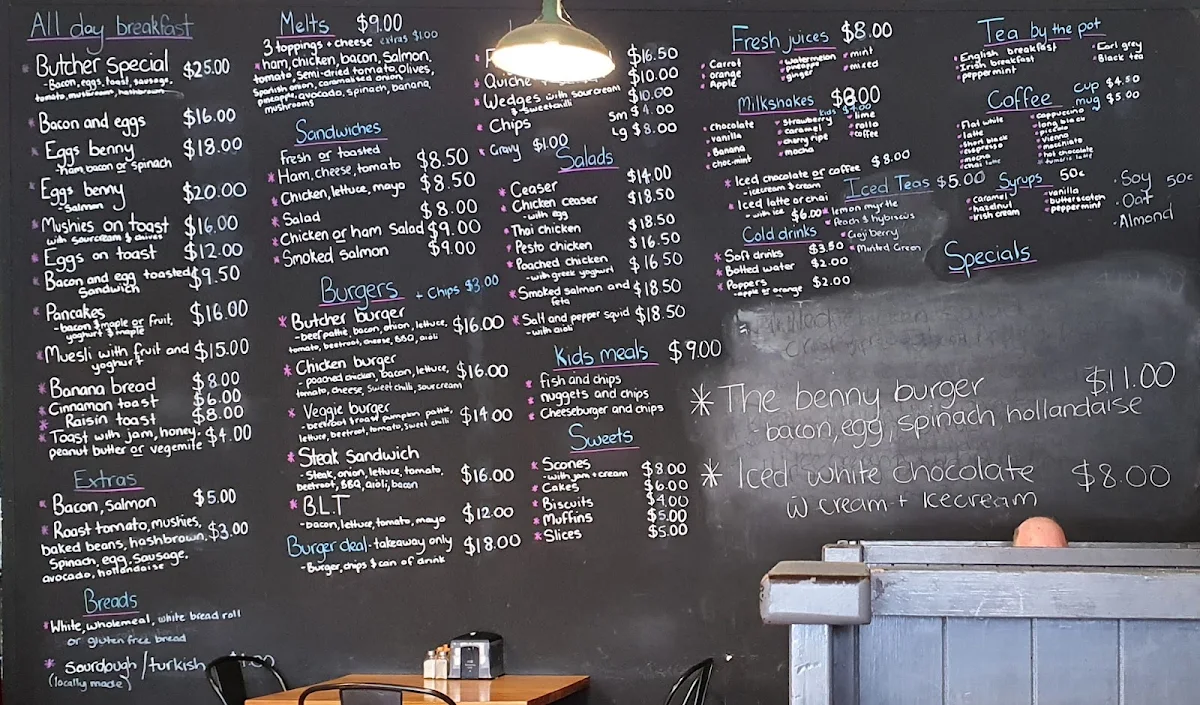 All day breakfast
* Butcher Special $25.00
- Bacon, eggs, toast, sausage,
tomato, mushroom, hashbrown
* Bacon and eggs $16.00
* Eggs benny $18.00
- ham, bacon or spinach
* Eggs benny $20.00
- Salmon
* Mushies on toast $16.00
with sourcream & chives
* Eggs on toast $12.00
* Bacon and egg toasted $9.50
Sandwich
* Pancakes $16.00
- bacon & maple or fruit,
yoghurt & maple
* Muesli with fruit and $15.00
yoghurt
* Banana bread $8.00
* Cinnamon toast $6.00
* Raisin toast $8.00
* Toast with jam, honey, $4.00
peanut butter or vegemite
Extras
* Bacon, salmon $5.00
* Roast tomato, mushies, $3.00
baked beans, hashbrown,
Spinach, egg, Sausage,
avocado, hollandaise
Breads
* White, wholemeal, white bread roll
or gluten free bread
* Sourdough / turkish
(locally made)
Melts $9.00
3 toppings + cheese extras $1.00
* ham, chicken, bacon, salmon,
tomato, semi-dried tomato, olives,
Spanish onion, caramalised onion,
pineapple, avocado, spinach, banana,
mushrooms
Sandwiches
Fresh or toasted
* Ham, cheese, tomato $8.50
* Chicken, lettuce, mayo $8.50
* Salad $8.00
* Chicken or ham Salad $9.00
* Smoked salmon $9.00
Burgers + Chips $3.00
* Butcher burger
- beef pattie, bacon, onion, lettuce, $16.00
tomato, beetroot, cheese, BBQ, aioli
* Chicken burger
- poached chicken, bacon, lettuce, $16.00
tomato, cheese, sweet chilli, sourcream
* Veggie burger
- beetroot & roast pumpkin pattie, $14.00
lettuce, beetroot, tomato, sweet chilli
* Steak Sandwich
- Steak, onion, lettuce, tomato, $16.00
beetroot, BBQ, aioli, bacon
* B.L.T
- bacon, lettuce, tomato, mayo $12.00
Burger deal - takeaway only $18.00
- Burger, chips & can of drink
$16.50
* Quiche $10.00
* Wedges with sourcream $10.00
& sweet chilli
* Chips sm $4.00
lg $8.00
* Gravy $1.00
Salads
* Ceaser $14.00
* Chicken ceaser $18.50
- with egg
* Thai chicken $18.50
* Pesto chicken $16.50
* Poached chicken $16.50
- with greek yoghurt
* Smoked salmon and $18.50
feta
* Salt and pepper squid $18.50
- with aioli
Kids meals $9.00
* fish and chips
* nuggets and chips
* Cheeseburger and chips
Sweets
* Scones $8.00
- with jam + cream
* Cakes $6.00
* Biscuits $4.00
* Muffins $5.00
* Slices $5.00
Fresh juices $8.00
* Carrot * watermelon * mint
* orange * pineapple * mixed
* Apple * ginger
Milkshakes $8.00
kids $4.00
* Chocolate * Strawberry * lime
* vanilla * caramel * rollo
* Banana * cherry ripe * coffee
* choc-mint * mocha
* Iced chocolate or coffee $8.00
- icecream & cream
* Iced latte or chai
- with ice $6.00
Cold drinks
* Soft drinks $3.50
* Botted water $2.00
* Poppers $2.00
- apple or orange
Iced Teas $5.00
* lemon myrtle
* Peach & hybiscus
* Goji berry
* Minted Green
Tea by the pot
* English breakfast * Earl grey
* Irish breakfast * Black tea
* peppermint
Coffee cup $4.50
mug $5.00
* flat white * cappucino
* latte * long black
* short black * piccolo
* espresso * vienna
* mocha * macchiato
* chai latte * hot chocolate
* tumeric latte
Syrups 50c
* caramel * vanilla
* hazelnut * butterscotch
* Irish cream * peppermint
· Soy 50c
· Oat
· Almond
Specials
* The benny burger $11.00
- bacon, egg, spinach hollandaise
* Iced white chocolate $8.00
w cream + Icecream